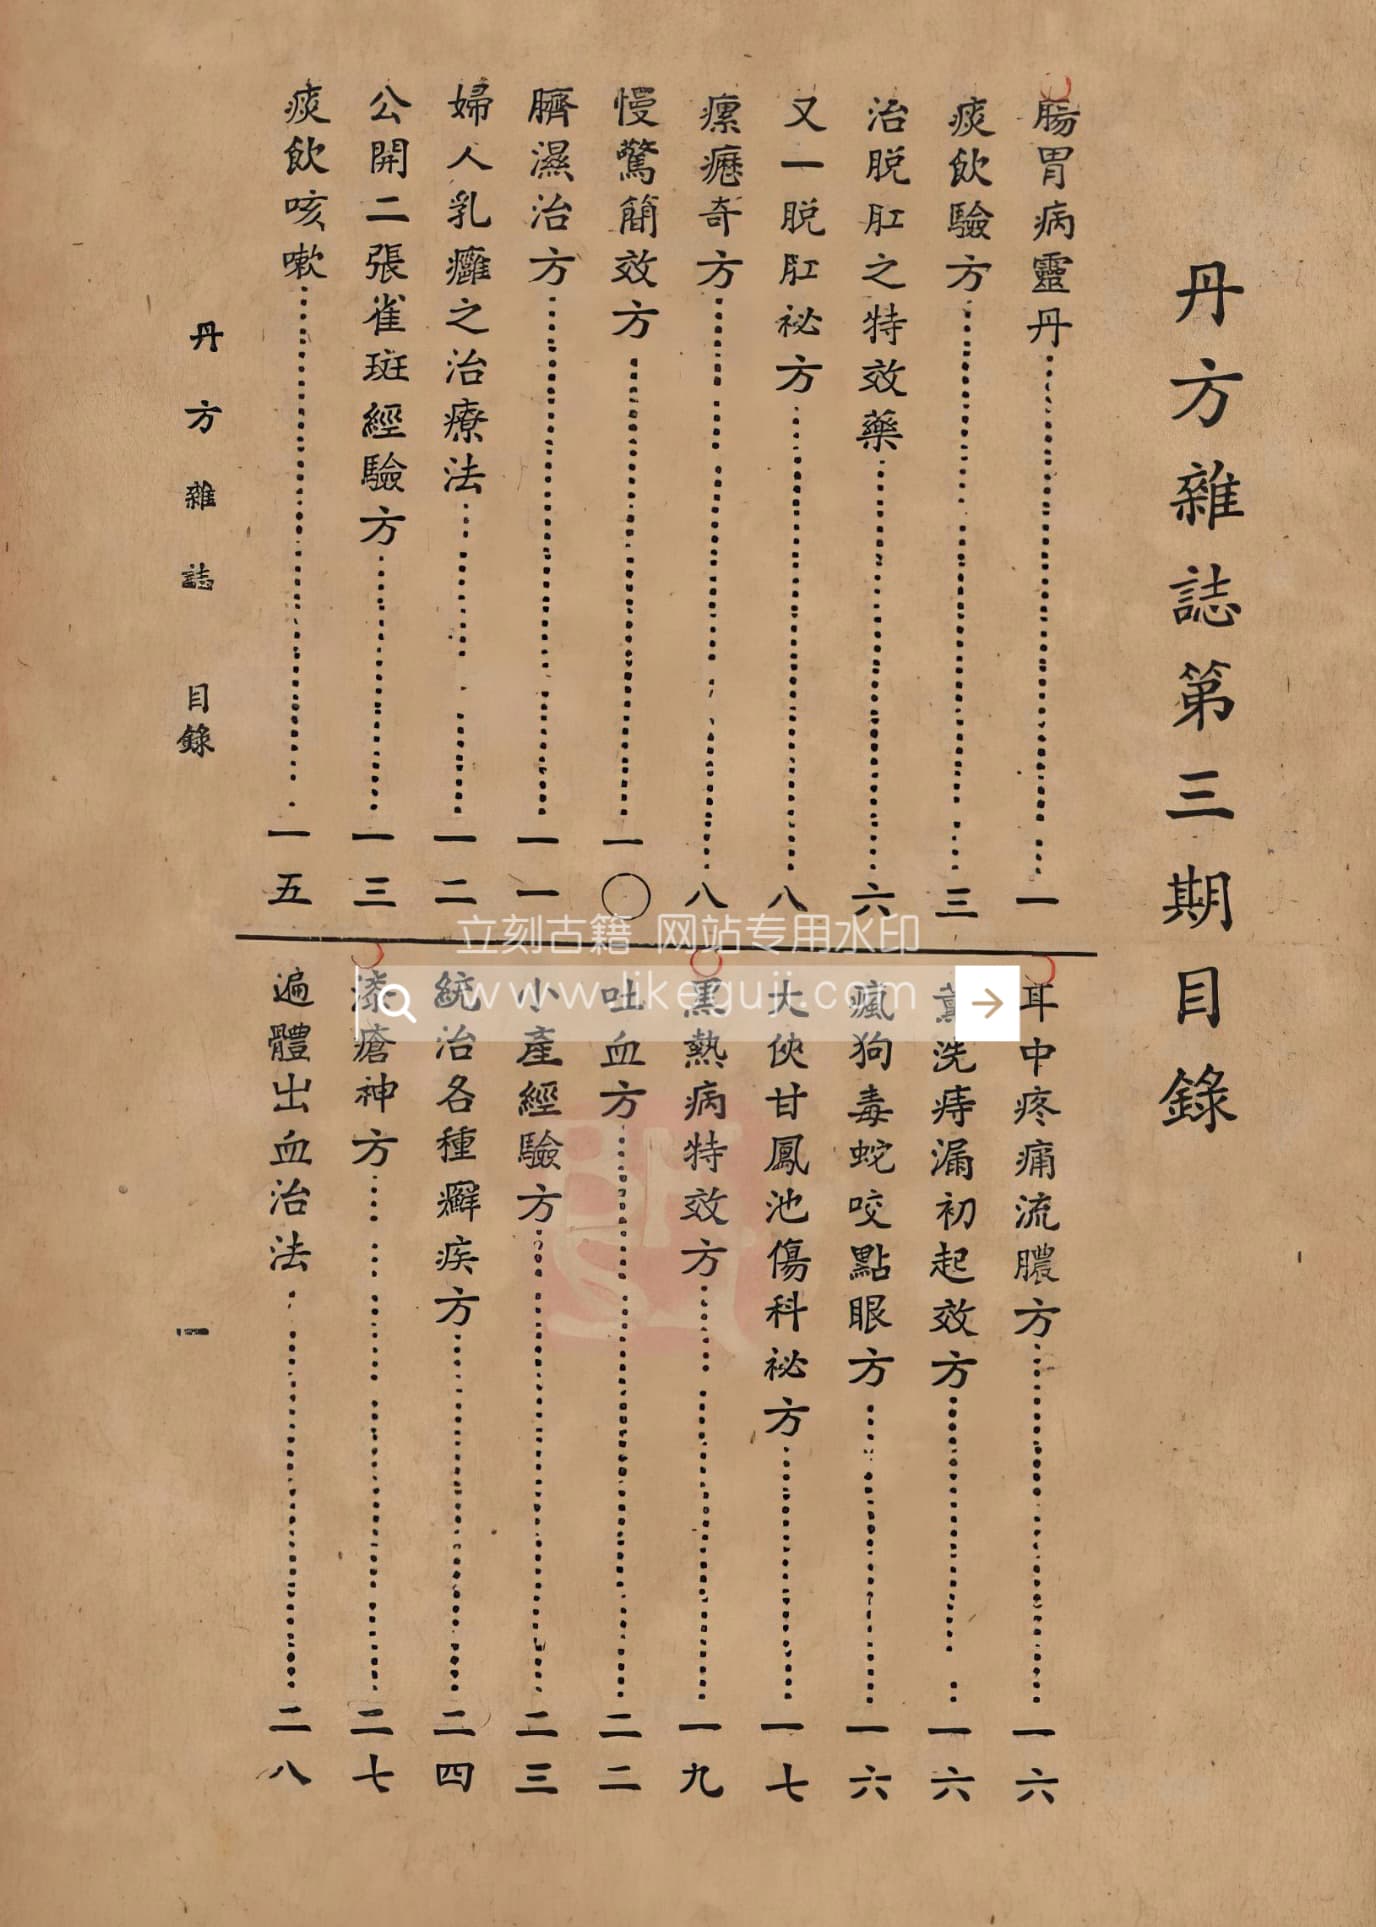 丹方雜誌第三期目錄
腸胃病靈丹……一
痰飲驗方……三
治脫肛之特效藥……六
又一脫肛祕方……八
瘰癧奇方……八
慢驚簡效方……一〇
臍濕治方……一一
婦人乳癰之治療法……一二
公開二張雀斑經驗方……一三
痰飲咳嗽……一五
耳中疼痛流膿方……一六
薰洗痔漏初起效方……一六
瘋狗毒蛇咬點眼方……一六
大俠甘鳳池傷科祕方……一七
黑熱病特效方……一九
吐血方……二二
小產經驗方……二三
統治各種癬疾方……二四
漆瘡神方……二七
遍體出血治法……二八
丹方雜誌 目錄 一
立刻古籍 网站专用水印
www.likeguji.com